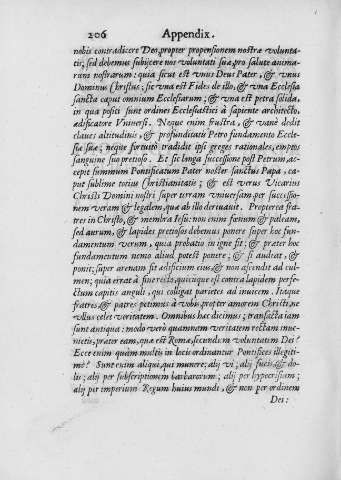 206 Appendix.
nobis contradicere Deo, propter propensionem nostræ volunta-
tis; sed debemus subijcere nos voluntati suæ, pro salute anima-
rum nostrarum: quia sicut est vnus Deus Pater, & vnus
Dominus Christus; sic vna est Fides de illo, & vna Ecclesia
sancta caput omnium Ecclesiarum; & vna est petra solida,
in qua positi sunt ordines Ecclesiastici à sapiente architecto,
ædificatore Vniuersi. Neque enim frustra, & vanè dedit
claues altitudinis, & profunditatis Petro fundamento Eccle-
siæ suæ; neque fortuitò tradidit ipsi greges rationales, emptos
sanguine suo pretioso. Et sic longa successione post Petrum, ac-
cepit summum Pontificatum Pater noster sanctus Papa, ca-
put sublime totius Christianitatis; & est verus Vicarius
Christi Domini nostri super terram vniuersam per successio-
nem veram & legalem, quæ ab illo deriuauit. Propterea fra-
tres in Christo, & membra Iesu: non enim fœnum & paleam,
sed aurum, & lapides pretiosos debemus ponere super hoc fun-
damentum verum, quia probatio in igne fit; & præter hoc
fundamentum nemo aliud potest ponere; & si audeat, &
ponit; super arenam fit ædificium eius, & non ascendit ad cul-
men; quia errat à sine recto, quicunque est contra lapidem perfe-
ctum capitis anguli, qui colligat parietes ad inuicem. Itaque
fratres & patres petimus à vobis, propter amorem Christi, ne
vllus celet veritatem. Omnibus hæc dicimus; transacta iam
sunt antiqua: modo verò quamnam veritatem rectam inue-
nietis, præter eam, quæ est Romæ, secundùm voluntatem Dei?
Ecce enim quàm multis in locis ordinantur Pontifices illegiti-
mè? Sunt enim aliqui, qui munere; alij vi; alij fucis, & do-
lis; alij per subscriptionem barbarorum; alij per hypocrisim;
alij per imperium Regum huius mundi, & non per ordinem
Dei: